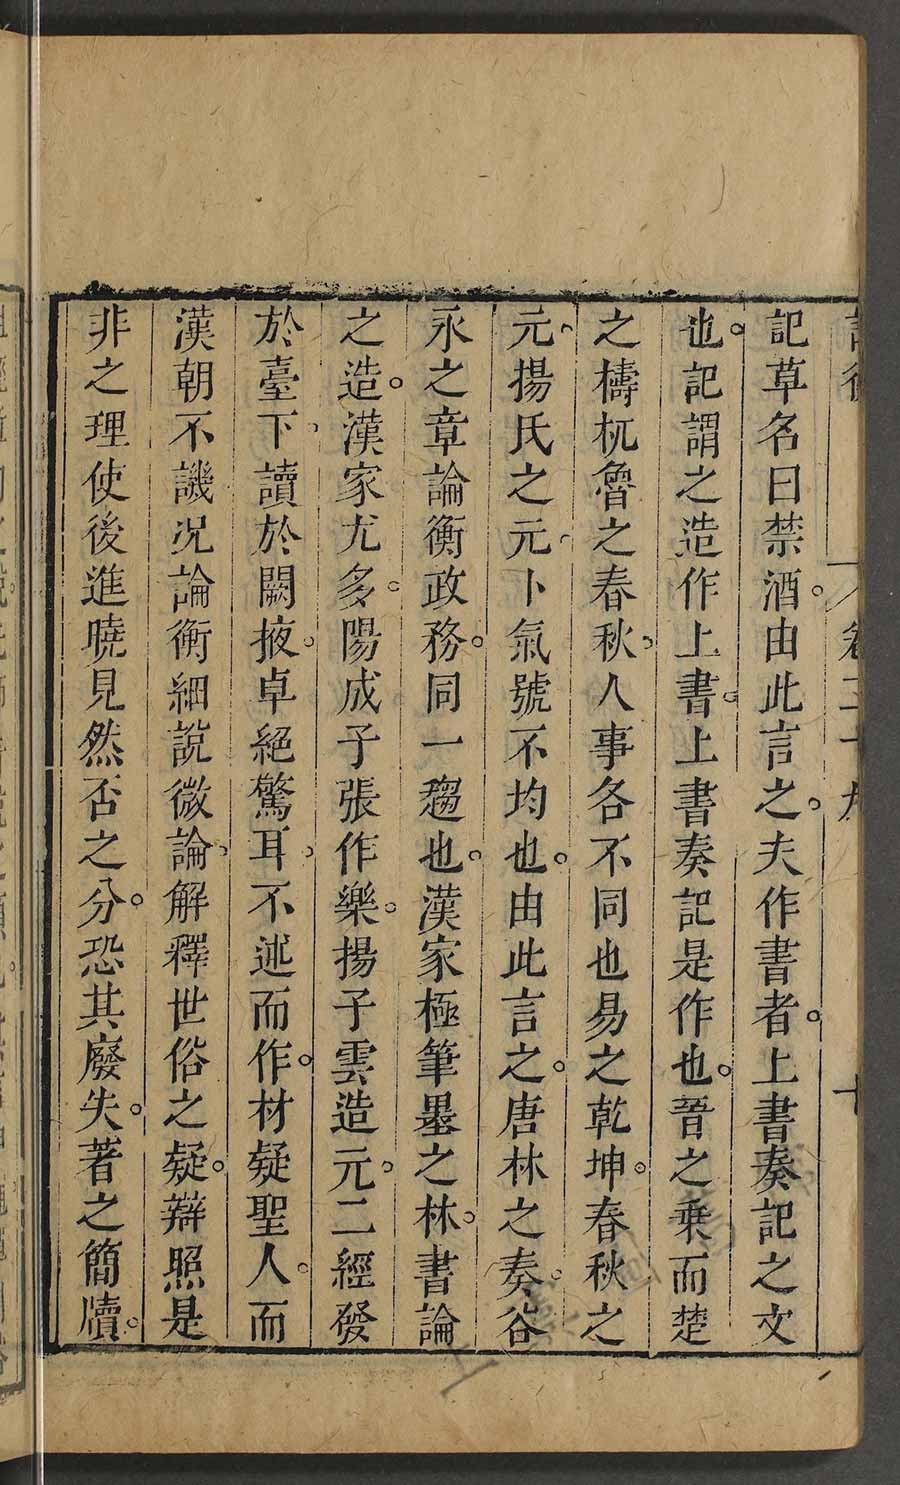 記草名曰禁酒。由此言之。夫作書者。上書奏記之文
也。記謂之造作上書。上書奏記是作也。晉之乗而楚
之檮杌魯之春秋。人事各不同也易之乾坤。春秋之
元、揚氏之元、卜氣號不均也。由此言之。唐林之奏。谷
永之章論衡政務。同一趨也。漢家極筆墨之林。書論
之造。漢家尤多。陽成子張作樂。揚子雲造元。二經發
於臺下、讀於闕掖。卓絕驚耳、不述而作。材疑聖人。而
漢朝不譏况論衡細說微論、解釋世俗之疑。辯照是
非之理使後進曉見然否之分。恐其廢失。著之簡牘。